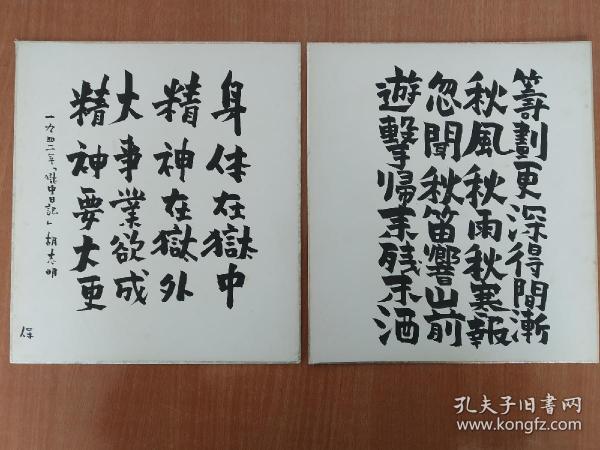 身体在獄中
精神在獄外
大事業欲成
精神要大更
一九四二年「獄中日記」胡志明
籌劃更深得間漸
秋風秋雨秋寒報
忽聞秋笛響山前
遊撃帰来残未酒
孔夫子旧书网
www.kongfz.com